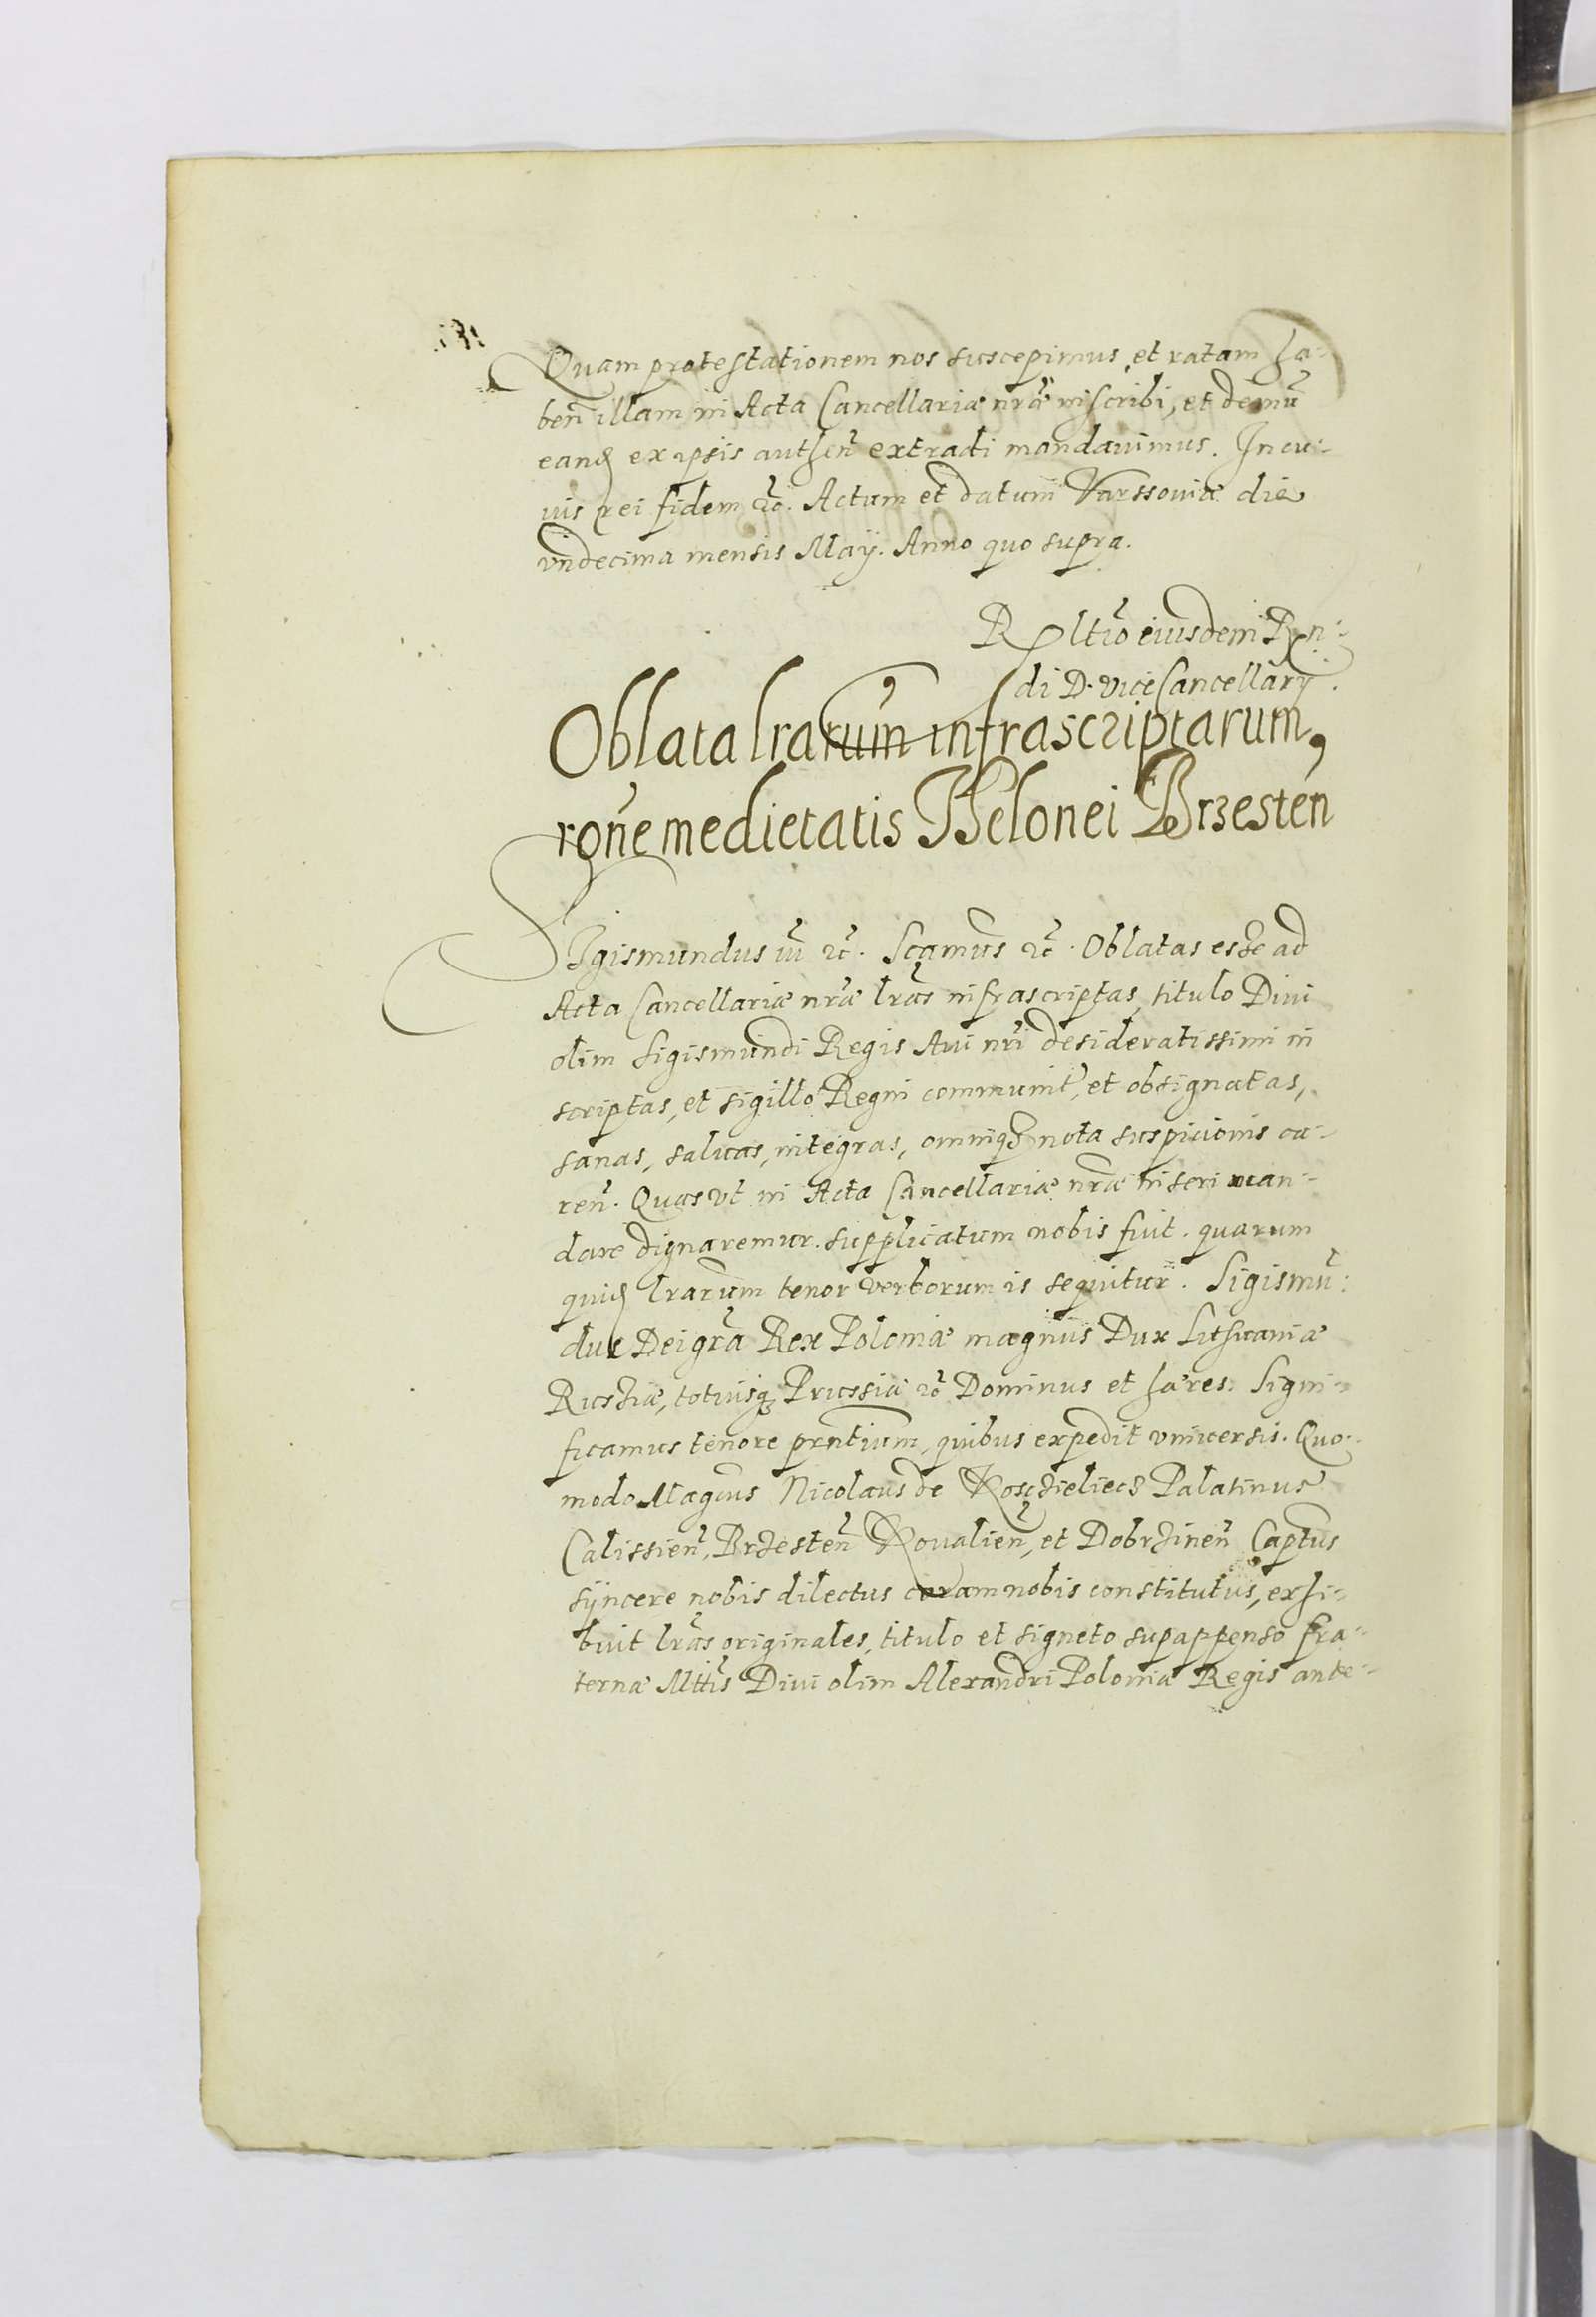 Quam protestationem nos suscepimus, et ratam ha-
beñ illam in Acta Cancellariæ nrã inscribi, et demũ
eand ex ipsis autheñ extradi mandavimus. In cu-
ius rei fidem &c. Actum et datum Varssoviæ die
vndecima mensis Maÿ. Anno quo supra.
Rltio eiusdem R n:
di D. vice Cancellarÿ.
Oblata lrarum infrascriptarum,
rone medietatis Thelonei Brzesteñ
SIgismundus iij &c. Scamus &c. Oblatas esse ad
Acta Cancellariæ nræ lras infrascriptas, titulo Divi
olim Sigismundi Regis Avi nri desideratissimi in
scriptas, et sigillo Regni communit, et obsignatas,
sanas, salvas, integras, omniq3 nota suspicionis ca-
reñ. Quas vt in Acta Cancellariæ nræ inseri man-
dare dignaremur. supplicatum nobis fuit. quarum
quid lrarum tenor verborum is sequitur. Sigismũ:
dus Dei gra Rex Poloniæ magnus Dux Lithvaniæ
Russiæ, totiusq3 Prussiæ &c Dominus et hæres. Signi-
ficamus tenore prntium, quibus expedit vniversis. Quo-
modo Magcus Nicolaus de Koscieliecz Palatinus
Calissieñ, Brzesteñ Kovalieñ, et Dobrzineñ Captus
sÿncere nobis dilectus coram nobis constitutus, exhi-
buit lras originales, titulo et signeto supappenso fra-
ternæ Mttis Divi olim Alexandri Poloniæ Regis ante-